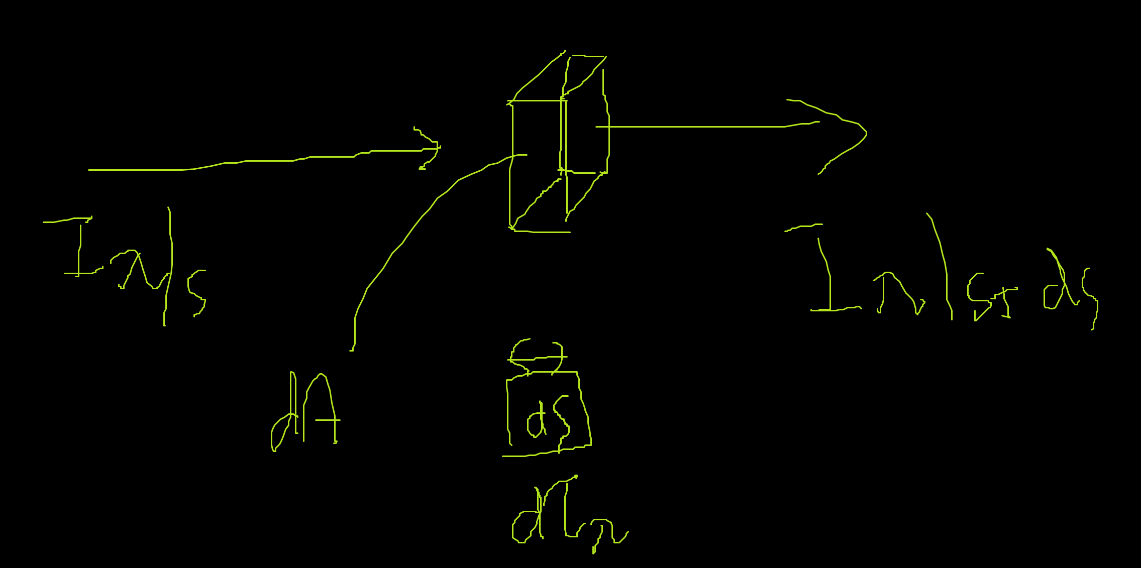 Iλ|s
Iλ|s+ds
dA
ds
dτλ